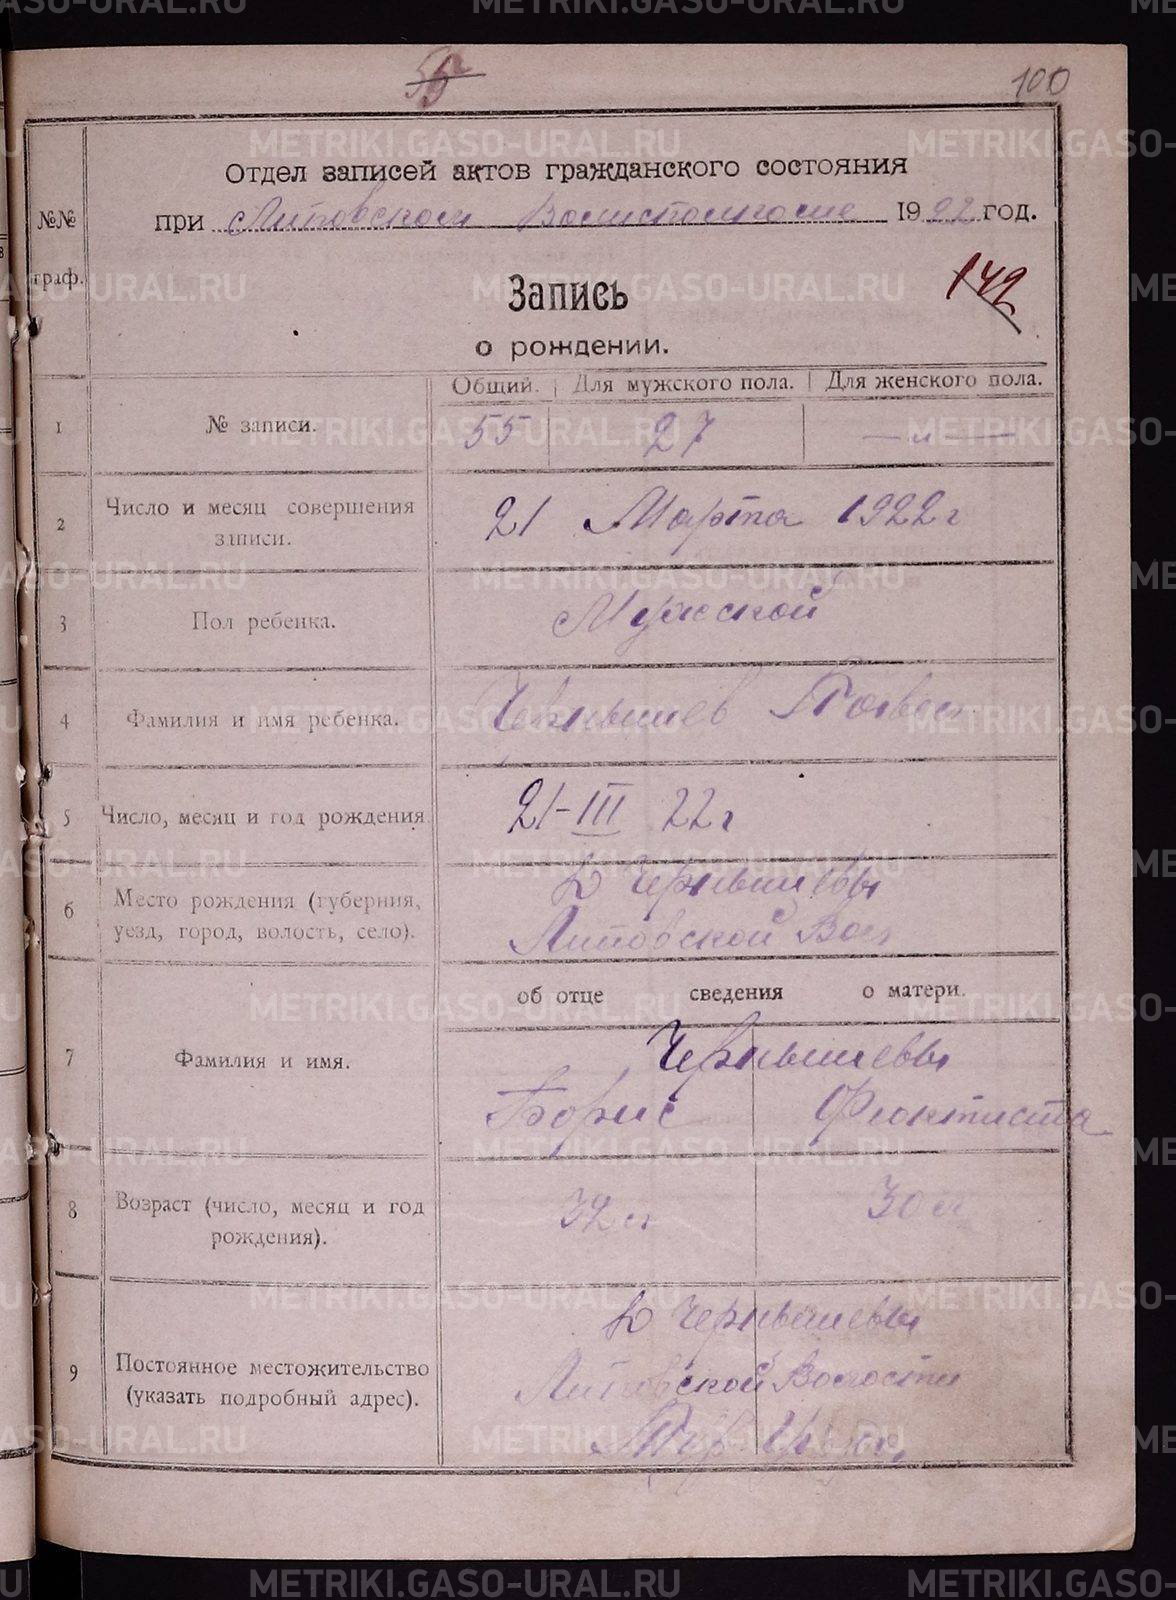 100
Отдел записей актов гражданского состояния
при Литовском Волисполкоме 1922 год.
№№
граф.
149
Запись
о рождении.
Общий. Для мужского пола. Для женского пола.
1 № записи. 55 27 — „ —
2 Число и месяц совершения записи. 21 Марта 1922 г
3 Пол ребенка. Мужской
4 Фамилия и имя ребенка. Чернышев
5 Число, месяц и год рождения 21-III 22 г
6 Место рождения (губерния, уезд, город, волость, село). Д Чернышевы
Литовской Вол
об отце сведения о матери.
7 Фамилия и имя. Чернышевы
Борис Феоктиста
8 Возраст (число, месяц и год рождения). 32 л 30 л
9 Постоянное местожительство (указать подробный адрес). Д Чернышевы
Литовской Волости
METRIKI.GASO-URAL.RU